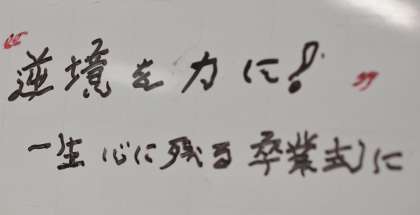 “逆境を力に!”
一生心に残る卒業式に